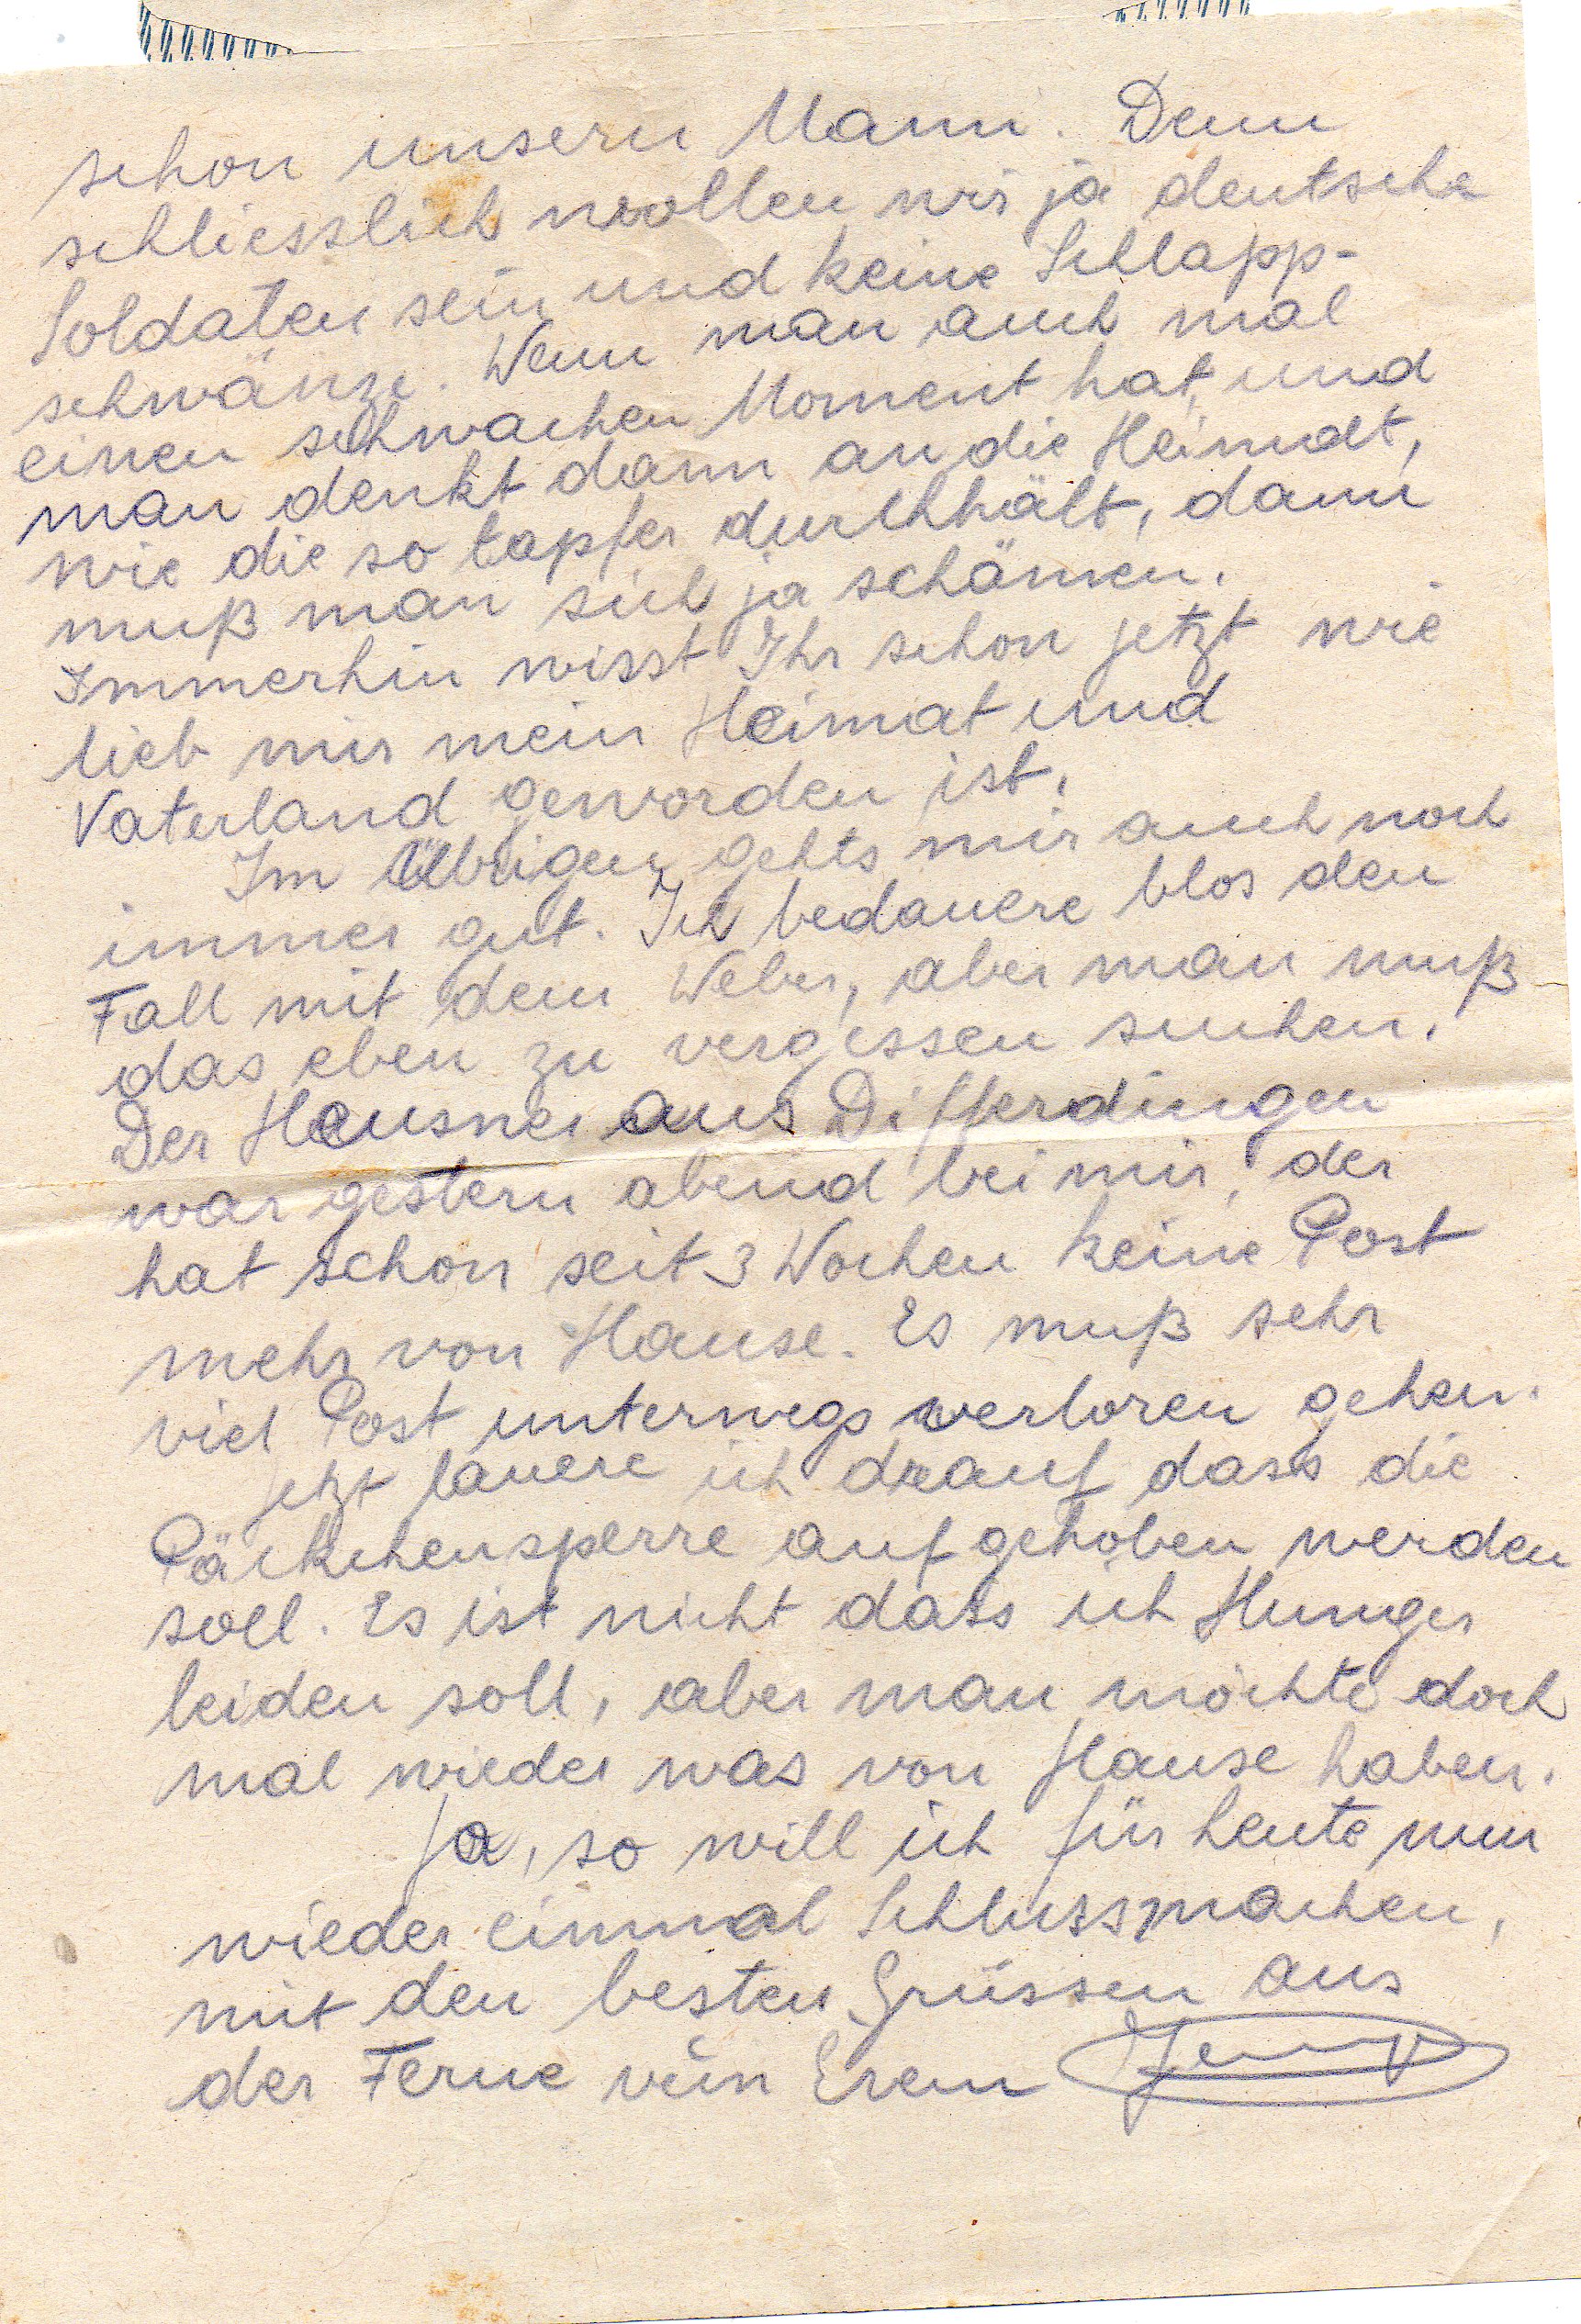 schon unsern Mann. Denn
schliesslich wollen wir ja deutsche
Soldaten sein und keine Schlapp-
schwänze. Wenn man auch mal
einen schwachen Moment hat, und
man denkt dann an die Heimat,
wie die so tapfer durchhält, dann
muß man sich ja schämen.
Immerhin wisst Ihr schon jetzt wie
lieb mir mein Heimat und
Vaterland geworden ist.
Im Übrigen gehts mir auch noch
immer gut. Ich bedauere blos den
Fall mit dem Weber, aber man muß
das eben zu vergessen suchen.
Der Hausner aus Differdingen
war gestern abend bei mir, der
hat schon seit 3 Wochen keine Post
mehr von Hause. Es muß sehr
viel Post unterwegs verloren gehen.
Jetzt lauere ich drauf dass die
Päckchensperre aufgehoben werden
soll. Es ist nicht dass ich Hunger
leiden soll, aber man möchte doch
mal wieder was von Hause haben.
Ja, so will ich für heute nun
wieder einmal Schlussmachen,
mit den besten Grüssen aus
der Ferne vun Erem Jemp